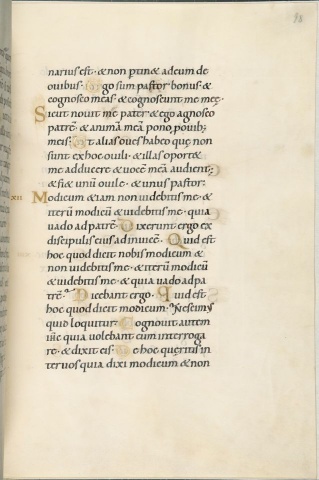 98
narius est · & non ptin& ad eum de
ovibus · Ego sum pastor bonus · &
cognosco meas · & cognoscunt me meę ·
Sicut novit me pater & ego agnosco
patrē · & animā meā pono ꝓ ovib;
meis · Et alias oves habeo quę non
sunt ex hoc ovili · & illas oport&
me adducere & vocē meā audient;
& fi& unū ovile · & unus pastor:
XII Modicum & iam non videbitis me · &
iterū modicū & videbitis me · quia
vado ad patrē · Dixerunt ergo ex
discipulis eius ad invicē · Quid est
hoc quod dicit nobis modicum &
non videbitis me · & iterū modicū
& videbitis me · & quia vado ad pa
trē · Dicebant ergo · Quid est
hoc quod dicit modicum · Nescimus
quid loquitur · Cognovit autem
ihc quia volebant eum interroga
re · & dixit eis · De hoc quęritis in
ter vos quia dixi modicum & non